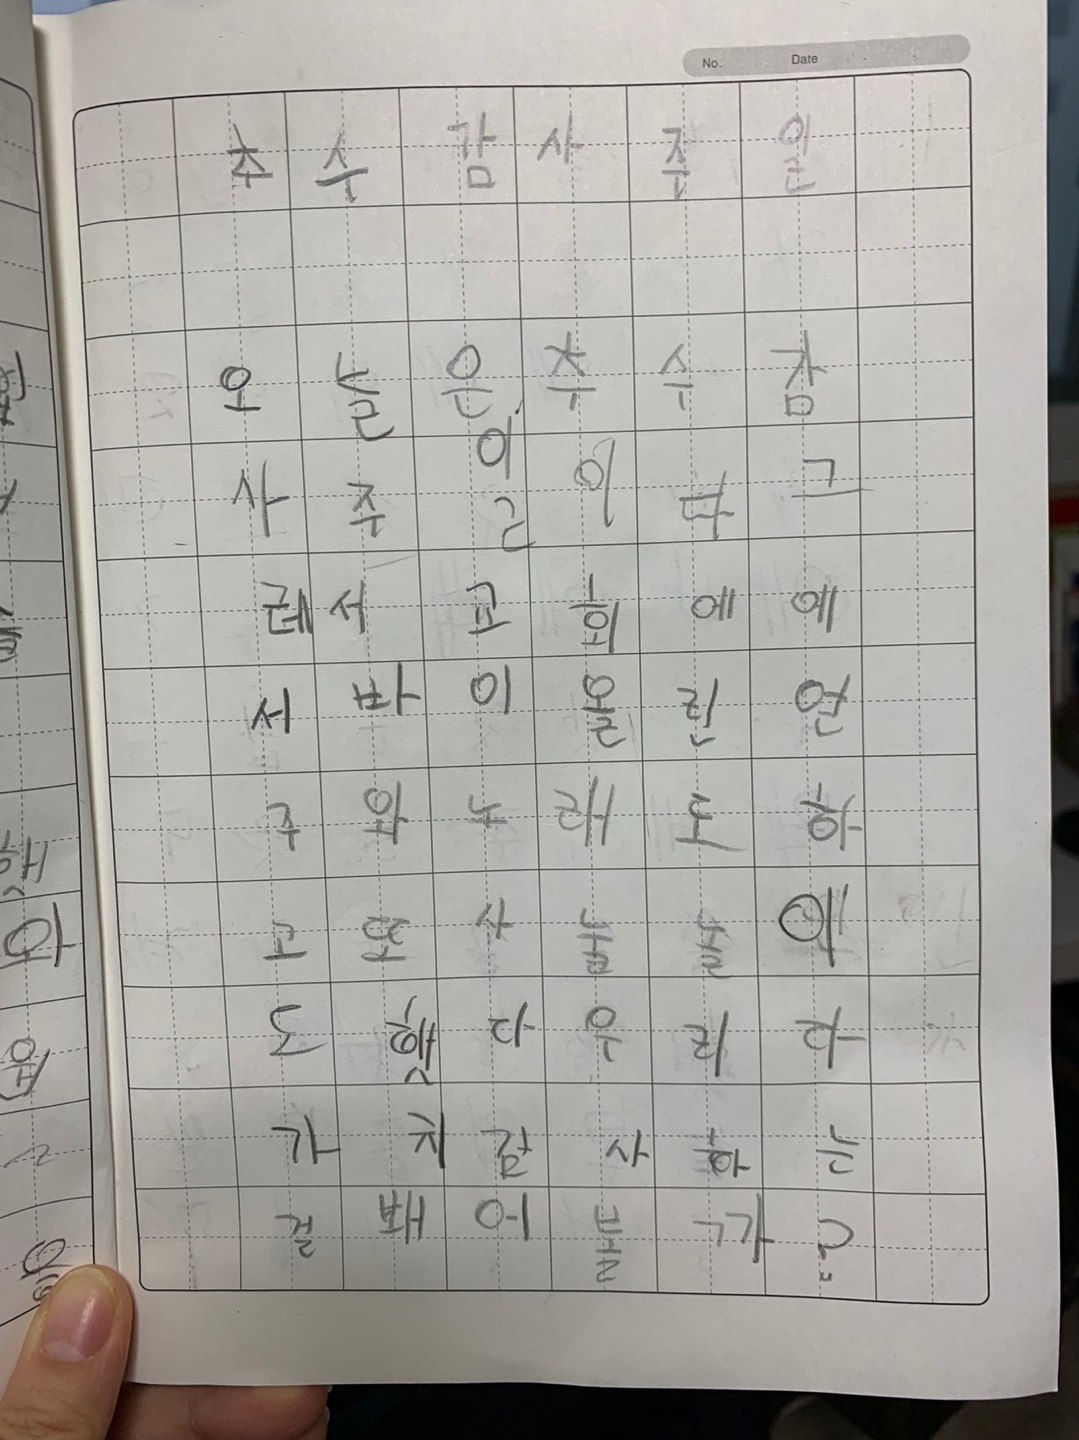 No. Date
추수감사주일
오늘은추수감
사주일이다그
레서교회에에
서바이올린연
주와노래도하
고
도했다우리다
가치감사하는
걸배어볼까?